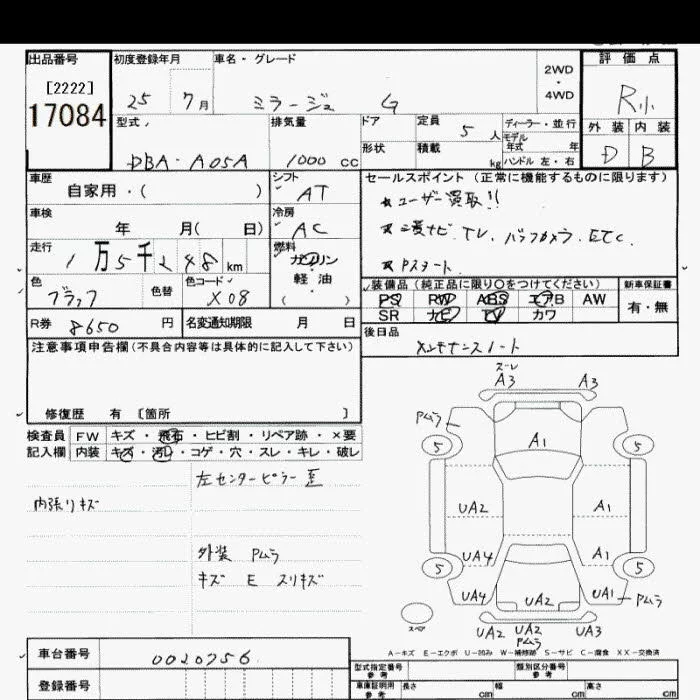 出品番号 初度登録年月 車名・グレード 2WD・4WD 評価点
[2222]
17084
25 7月 ミラージュ G R小
型式 排気量 ドア 定員 5人 ディーラー・並行 外装 内装
モデル年式 年
形状 積載 kg ハンドル 左・右
DBA-A05A 1000 cc D B
車歴 自家用・( )
シフト AT
セールスポイント (正常に機能するものに限ります)
ユーザー買取!!
三菱ナビ TV, バックカメラ, ETC.
Pスタート
車検 年 月( 日)
冷房 AC
走行 1万5千248 km
燃料 ガソリン 軽油 ( )
色 ブラック 色替 色コード X08
装備品 (純正品に限り○をつけてください) 新車保証書
PS RW ABS エアB AW 有・無
SR ナビ TV カワ
R券 8650円 名変通知期限 月 日
後日品
メンテナンスノート
注意事項申告欄(不具合内容等は具体的に記入して下さい)
修復歴 有 [箇所 ]
検査員 FW キズ・飛石・ヒビ割・リペア跡・×要
記入欄 内装 キズ・汚レ・コゲ・穴・スレ・キレ・破レ
左センターピラー歪
内張リキズ
外装 Pムラ
キズ E スリキズ
スーレ
A3 A3
Pムラ
5 5
A1
UA2 A1
UA4 A1
5 5
UA4 UA2 UA1 Pムラ
スペア
UA2 UA2 UA3
Pムラ
A-キズ E-エクボ U-凹み W-補修跡 S-サビ C-腐食 XX-交換済
車台番号 0020756
登録番号
型式指定番号 参考 類別区分番号 参考
車庫証明用 参考 長さ cm 幅 cm 高さ cm